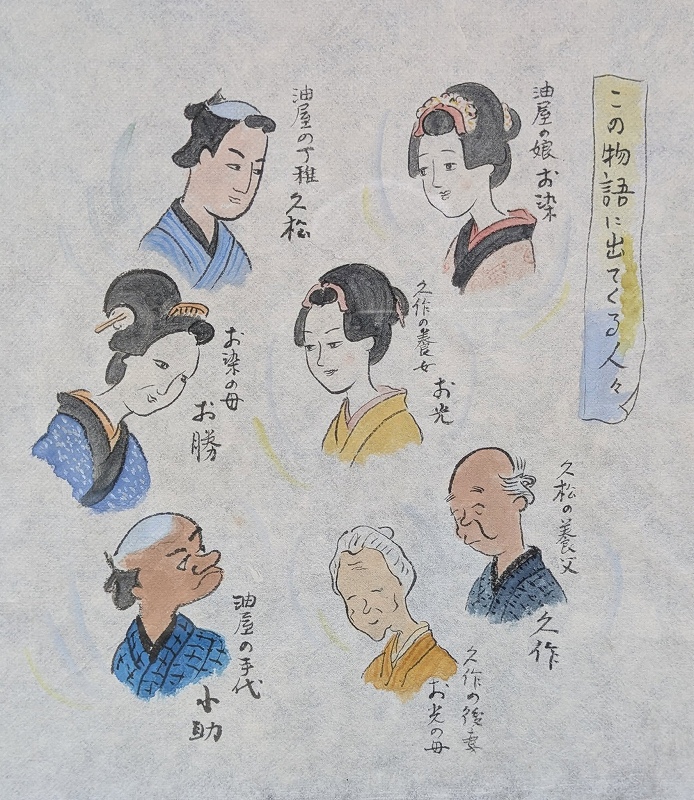 この物語に出てくる人々
油屋の娘
お染
油屋の丁稚
久松
久作の養女
お光
お染の母
お勝
久松の養父
久作
久作の後妻
お光の母
油屋の手代
小助